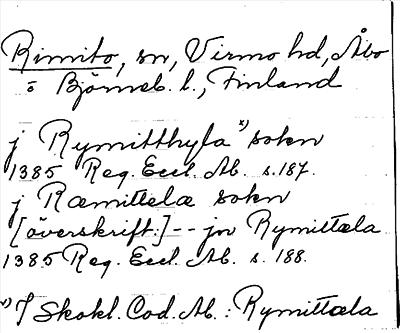 Rimito, sn, Virmo hd, Åbo
o Björneb. l., Finland
j Rymitthyla x) sokn
1385 Reg. Eccl. Ab. s. 187.
j Ræmittelæ sokn
[överskrift.] -- jn Rymittæla
1385 Reg. Eccl. Ab. s. 188.
x) I Skokl. Cod. Ab.: Rymittæla